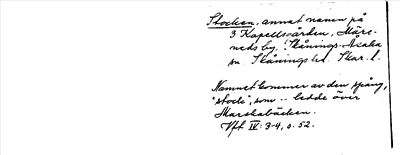 Stocken, annat namn på
3 Kapellsgården, Märe-
neds by, Skånings-Åsaka
sn. Skånings hd. Skar. l.
Namnet kommer av den spång,
"stock", som .. ledde över
Marskabäcken.
Vft IV: 3-4, s. 52.